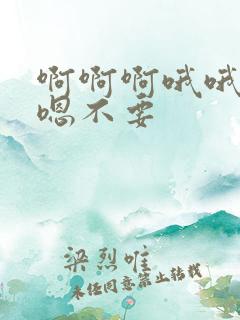 啊啊啊哦哦
嗯不要
梁烈唯
未经同意禁止转载